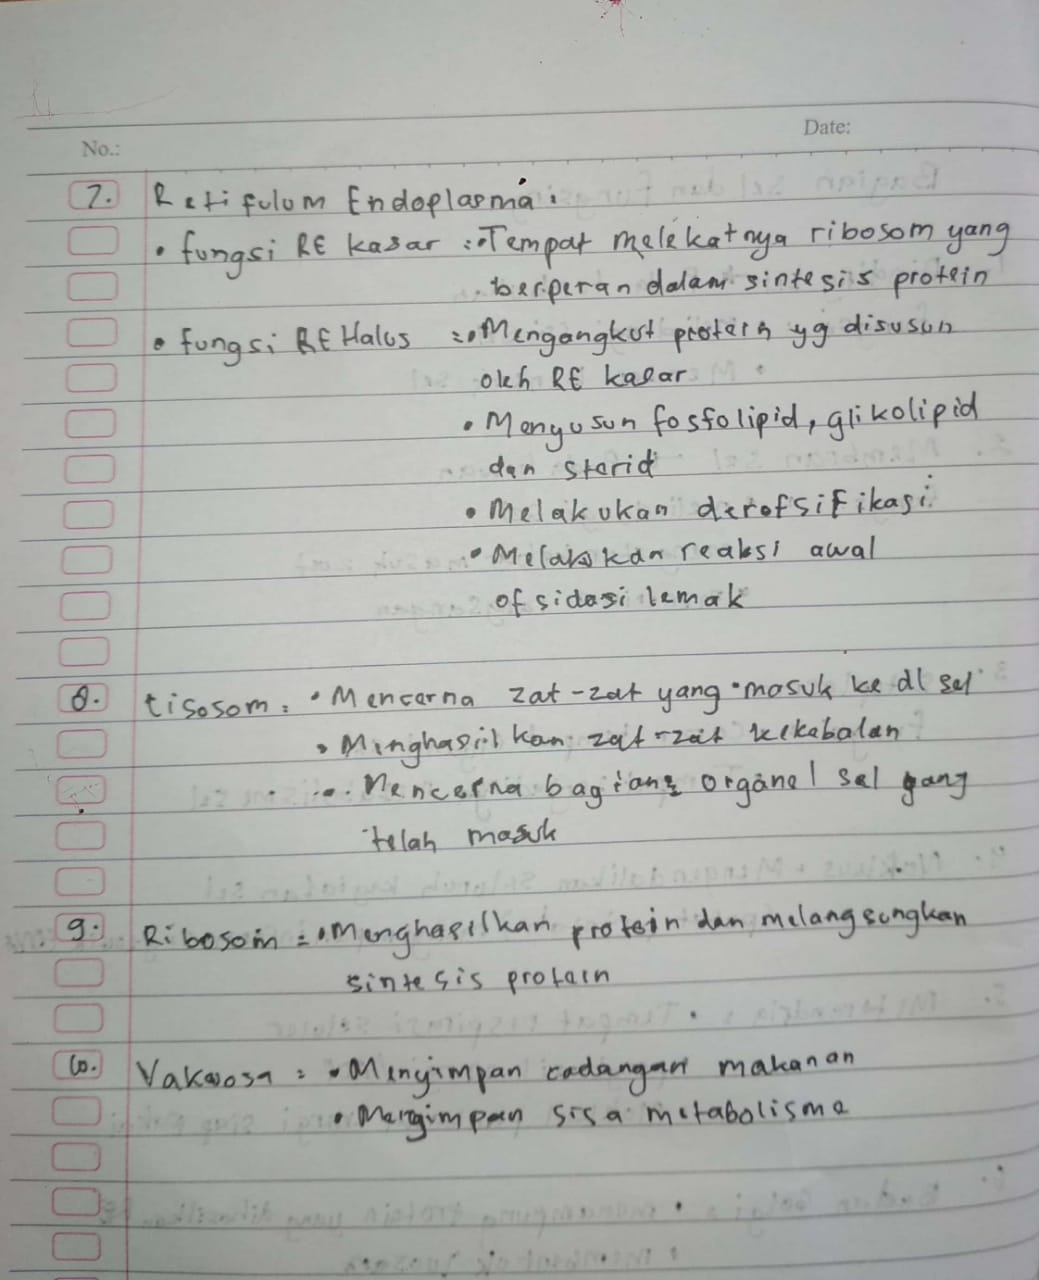 No.:
Date:
7. Retifulum Endoplasma:
• fungsi RE kasar : • Tempat melekatnya ribosom yang
berperan dalam sintesis protein
• fungsi RE Halus = • Mengangkut protein yg disusun
oleh RE kasar
• Menyusun fosfolipid, glikolipid
dan steroid
• Melakukan detofsifikasi
• Melakukan reaksi awal
ofsidasi lemak
8. Lisosom : • Mencerna zat-zat yang masuk ke dl sel
• Menghasilkan zat-zat kekebalan
• Mencerna bagian2 organel sel yang
telah masuk
9. Ribosom = • Menghasilkan protein dan melangsungkan
sintesis protein
10. Vakuosa : • Menyimpan cadangan makanan
• Menyimpan sisa metabolisme